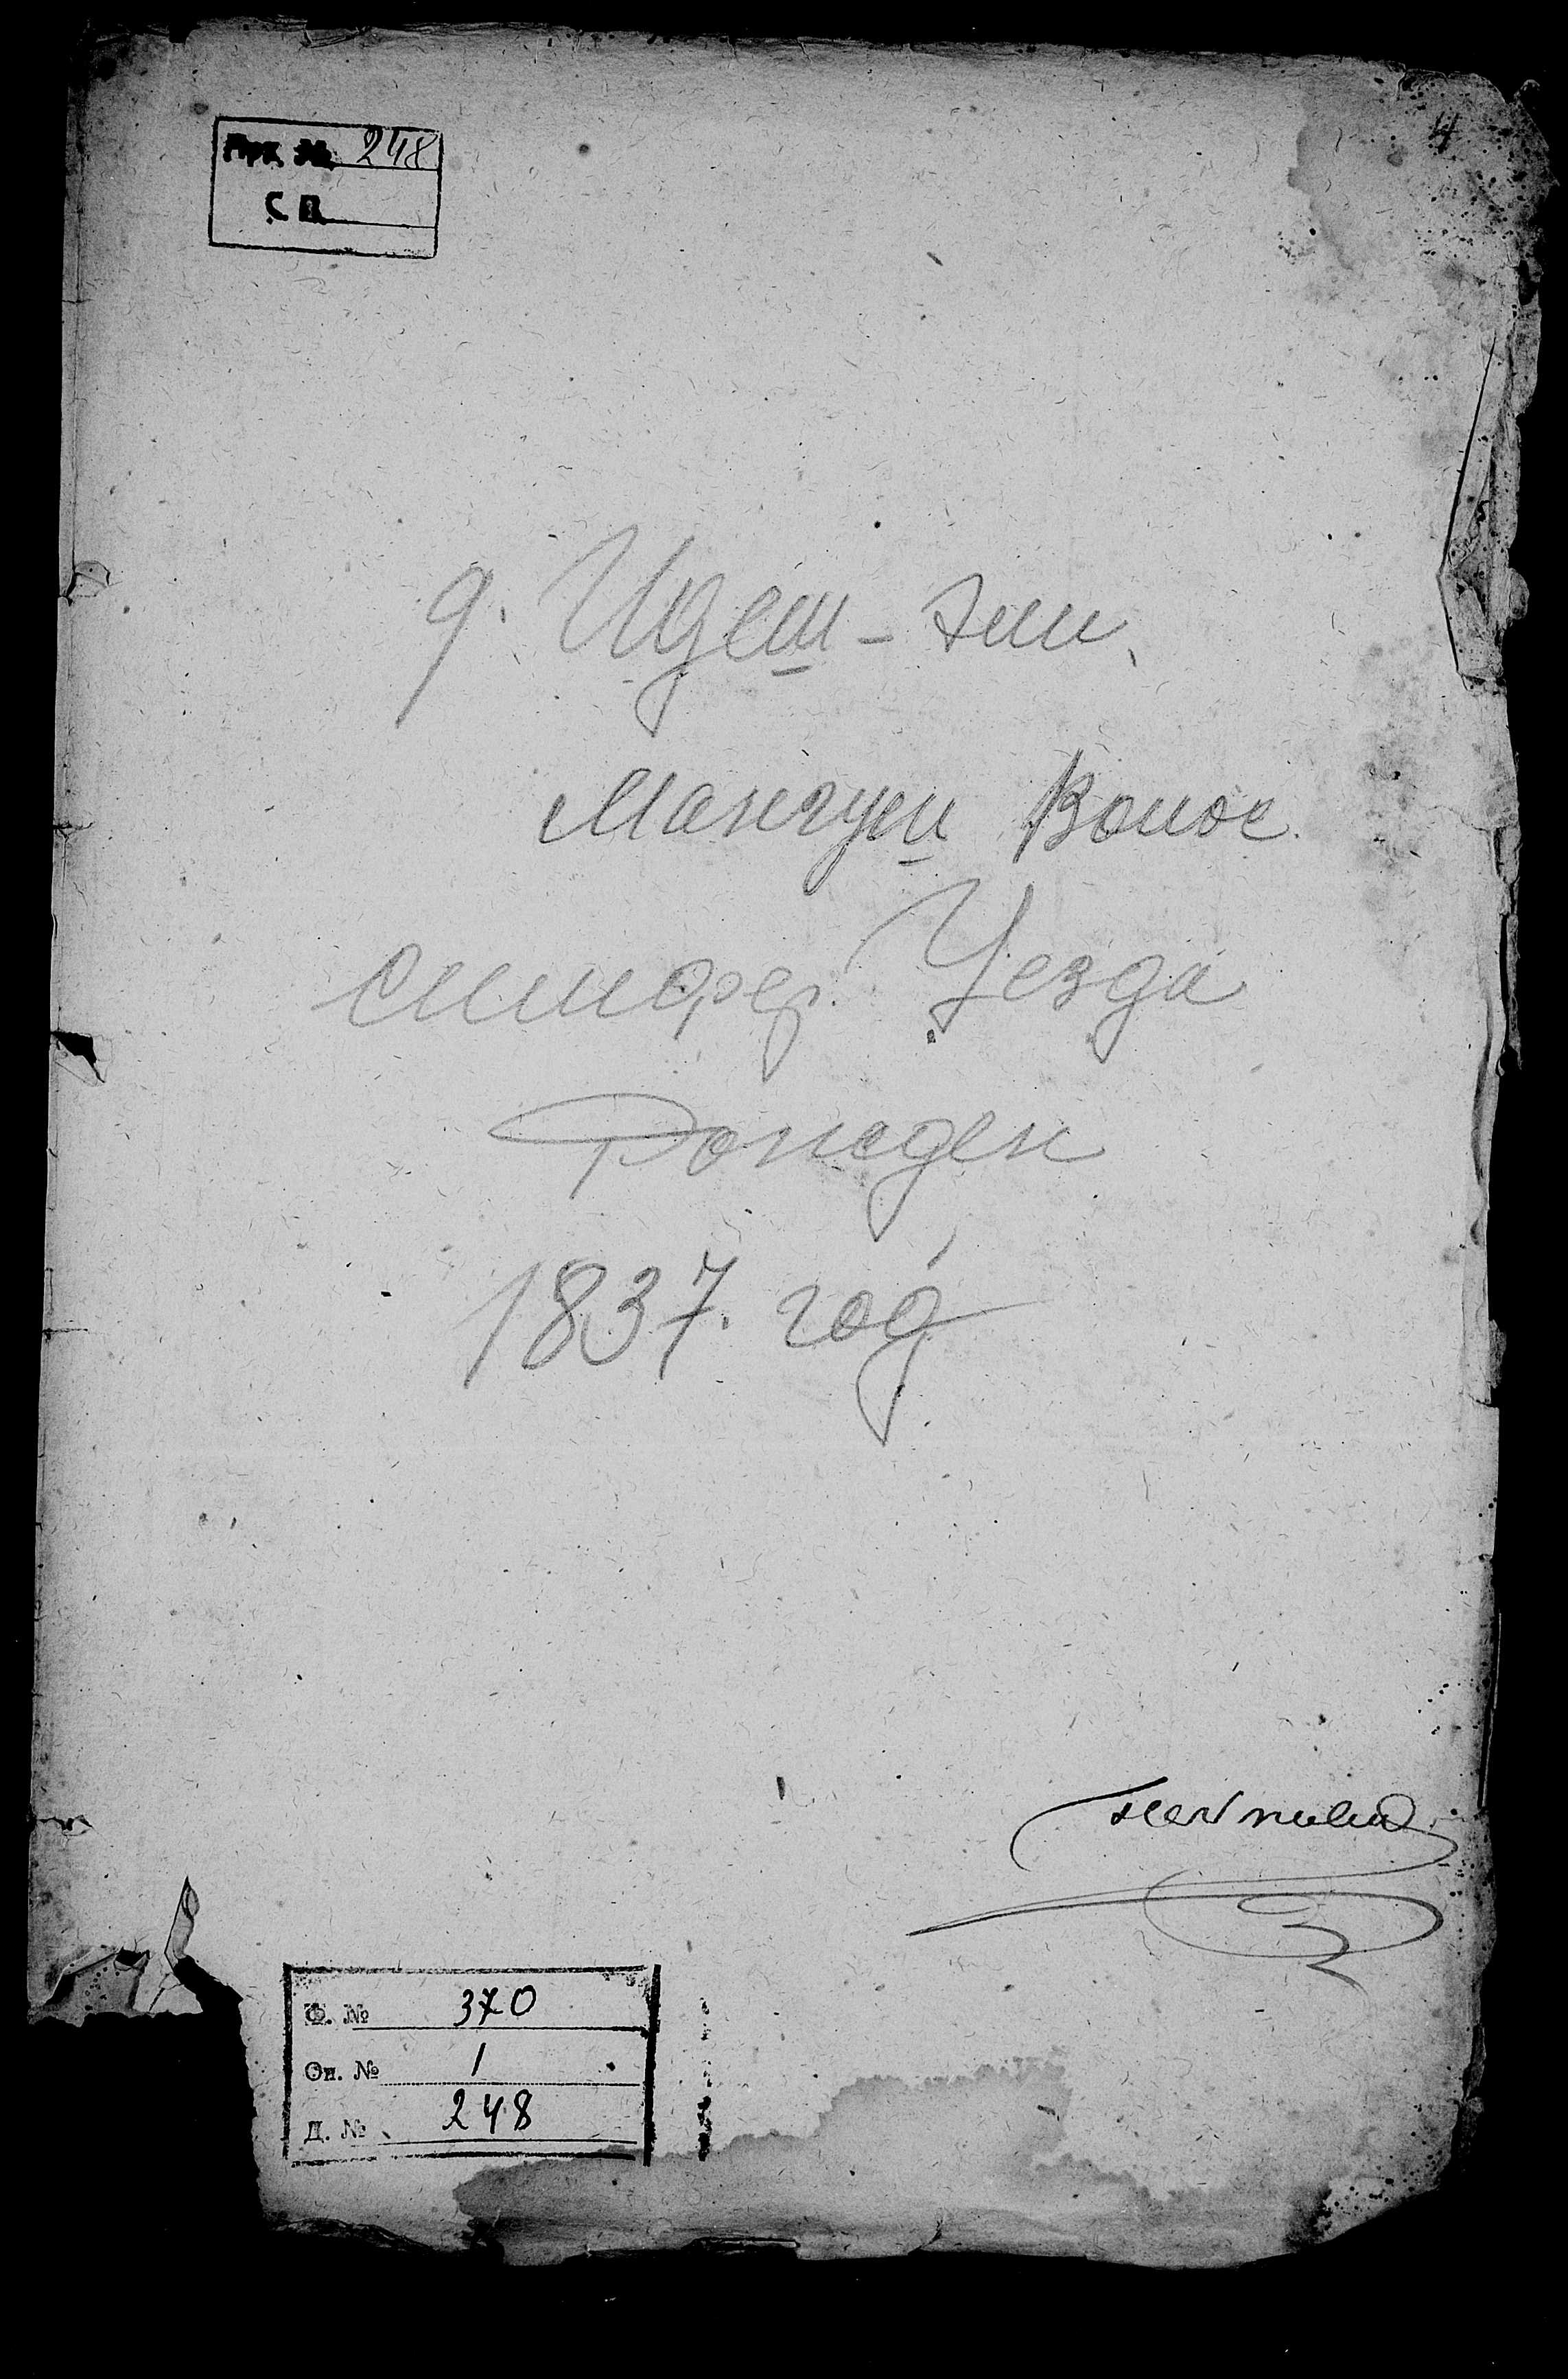 Арх. № 248
С П
4
д. Идеш-эли.
Мангуш Волос.
симфер. Уезда
Рожден
1837. год
Ф. № 370
Оп. № 1
Д. № 248